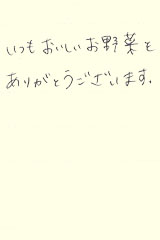 いつもおいしいお野菜を
ありがとうございます.